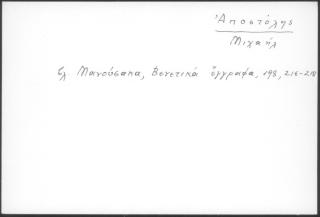 Ἀποστόλης
Μιχαήλ
βλ Μανούσακα, Βενετικά ἔγγραφα, 198, 216-218